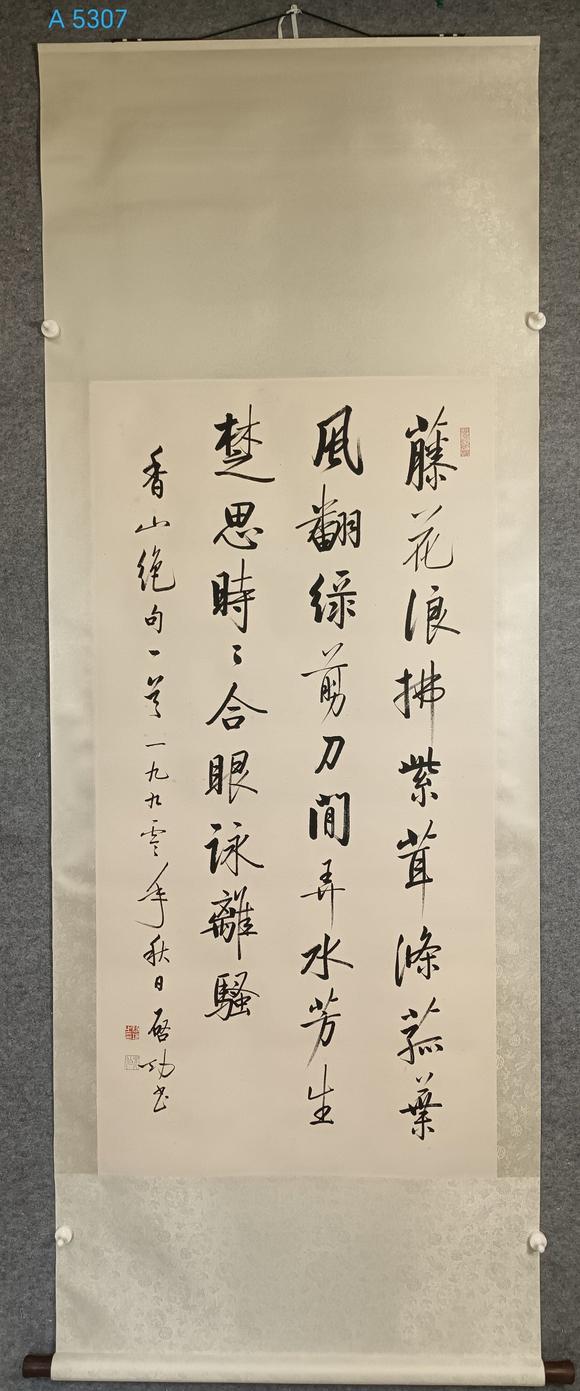 A 5307
藤花浪拂紫茸條菰葉
風翻綠剪刀閒弄水芳生
楚思時〻合眼詠離騷
香山絕句一首一九九零年秋日啓功書